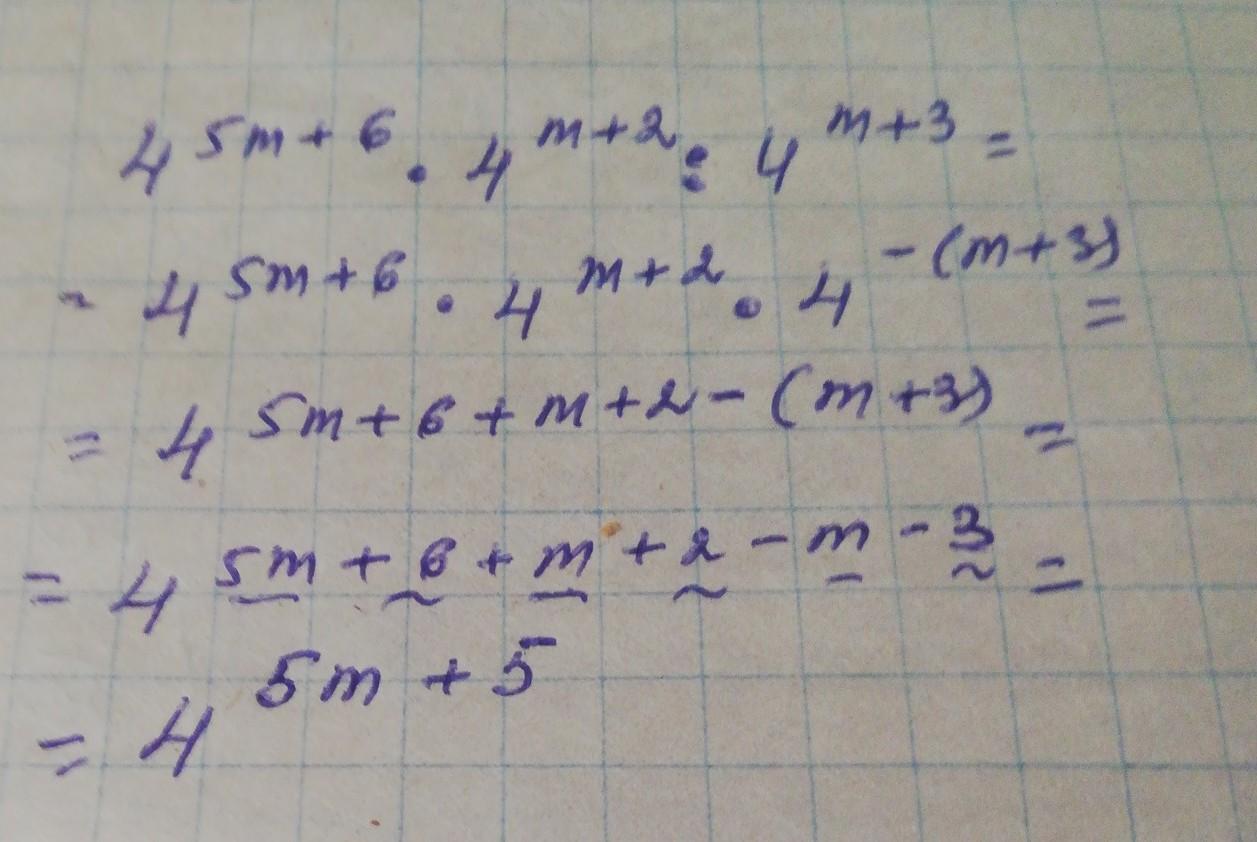 4^{5m+6} · 4^{m+2} : 4^{m+3} =
= 4^{5m+6} · 4^{m+2} · 4^{-(m+3)} =
= 4^{5m+6+m+2-(m+3)} =
= 4^{5m+6+m+2-m-3} =
= 4^{5m+5}